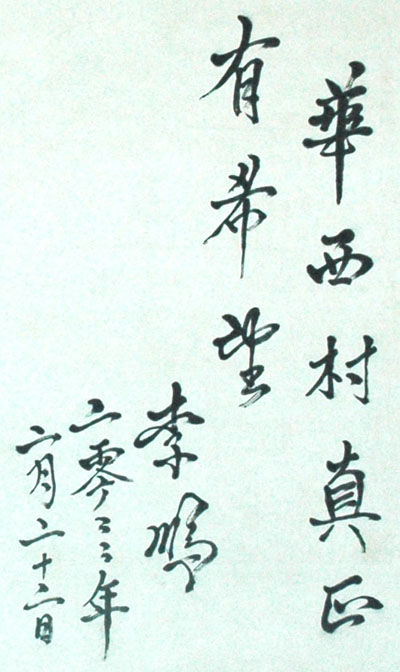 華西村真正
有希望
李鵬
二零〻三年
二月二十二日